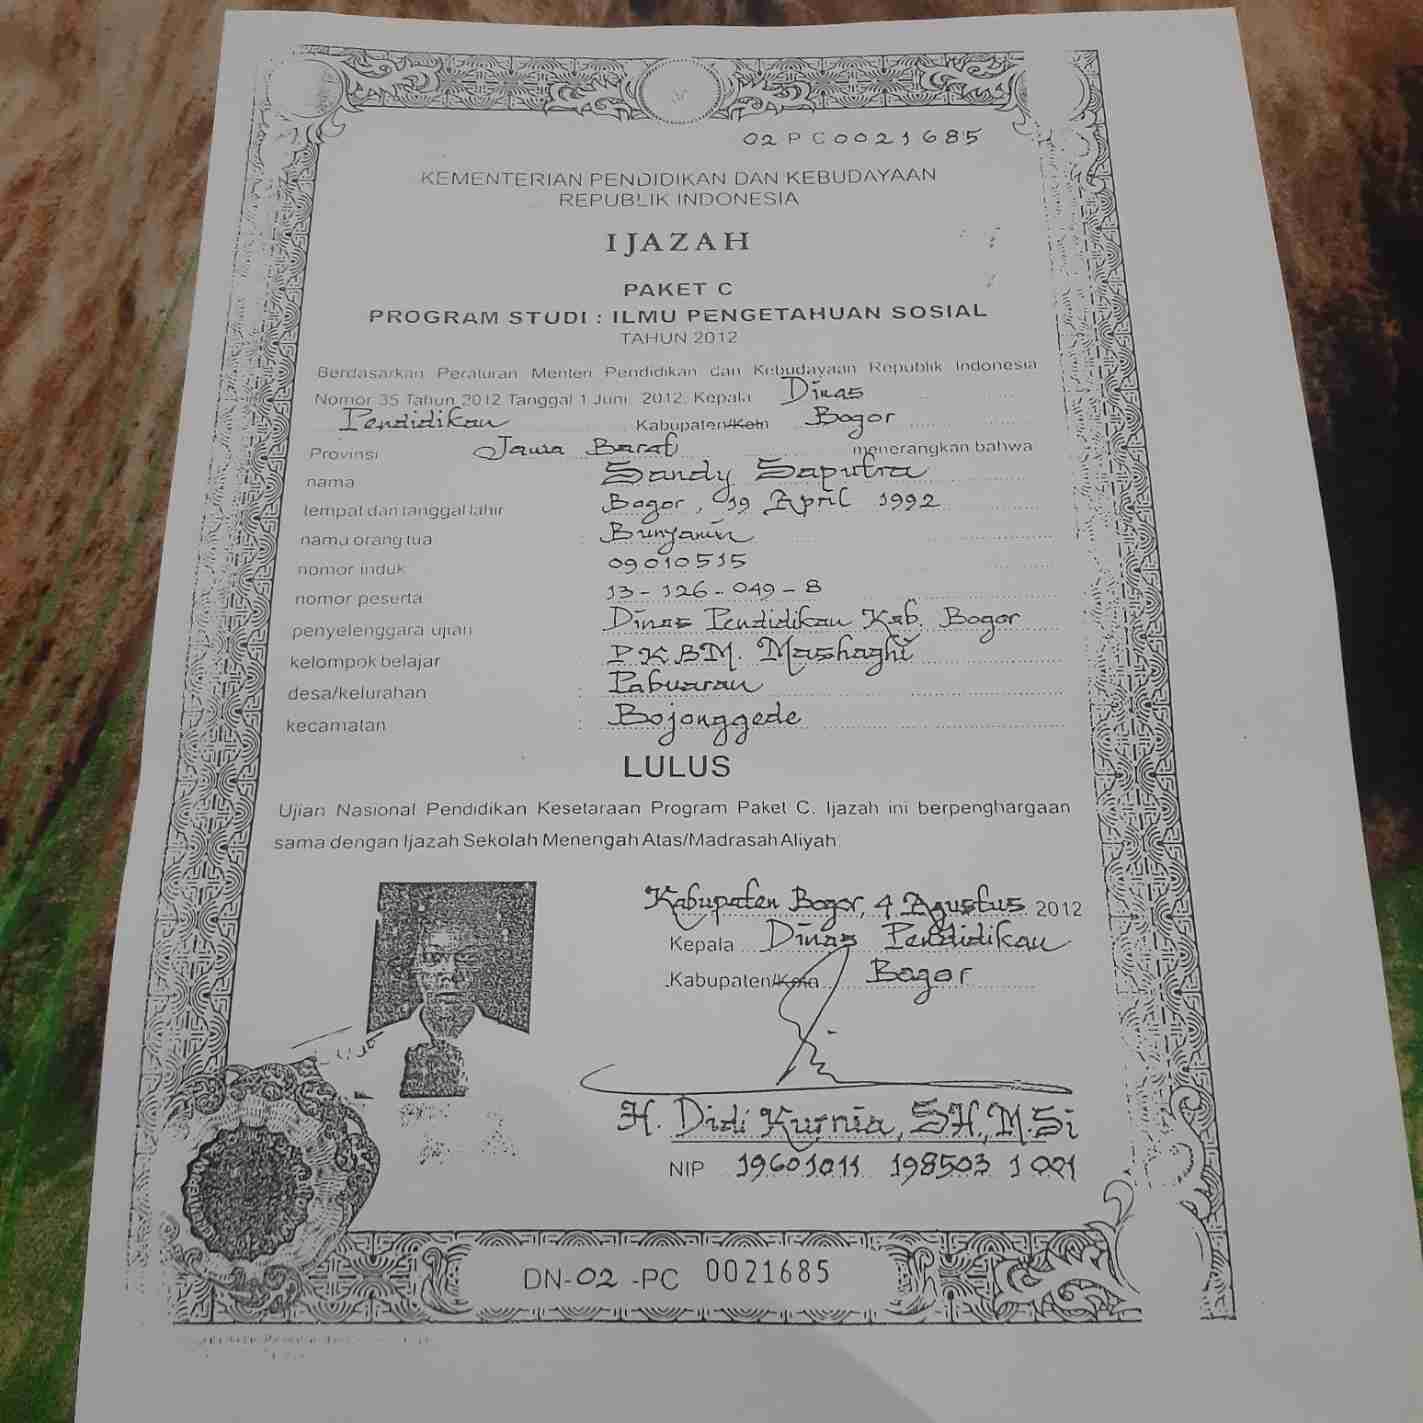 02 P C 0021685
KEMENTERIAN PENDIDIKAN DAN KEBUDAYAAN
REPUBLIK INDONESIA
IJAZAH
PAKET C
PROGRAM STUDI : ILMU PENGETAHUAN SOSIAL
TAHUN 2012
Berdasarkan Peraturan Menteri Pendidikan dan Kebudayaan Republik Indonesia
Nomor 35 Tahun 2012 Tanggal 1 Juni 2012, Kepala Dinas
Pendidikan Kabupaten/Kota Bogor
Provinsi Jawa Barat menerangkan bahwa
nama Sandy Saputra
tempat dan tanggal lahir Bogor, 19 April 1992
nama orang tua : Bunyamin
nomor induk 09010515
nomor peserta 13-126-049-8
penyelenggara ujian Dinas Pendidikan Kab. Bogor
kelompok belajar : PKBM. Mashaghi
desa/kelurahan : Pabuaran
kecamatan : Bojonggede
LULUS
Ujian Nasional Pendidikan Kesetaraan Program Paket C. Ijazah ini berpenghargaan
sama dengan Ijazah Sekolah Menengah Atas/Madrasah Aliyah.
Kabupaten Bogor, 4 Agustus 2012
Kepala Dinas Pendidikan
Kabupaten/Kota Bogor
H. Didi Kurnia, SH., M.Si
NIP 19601011 198503 1 001
DN-02-PC 0021685